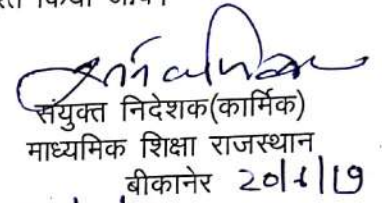 किया जाये।
संयुक्त निदेशक(कार्मिक)
माध्यमिक शिक्षा राजस्थान
बीकानेर 20/6/19